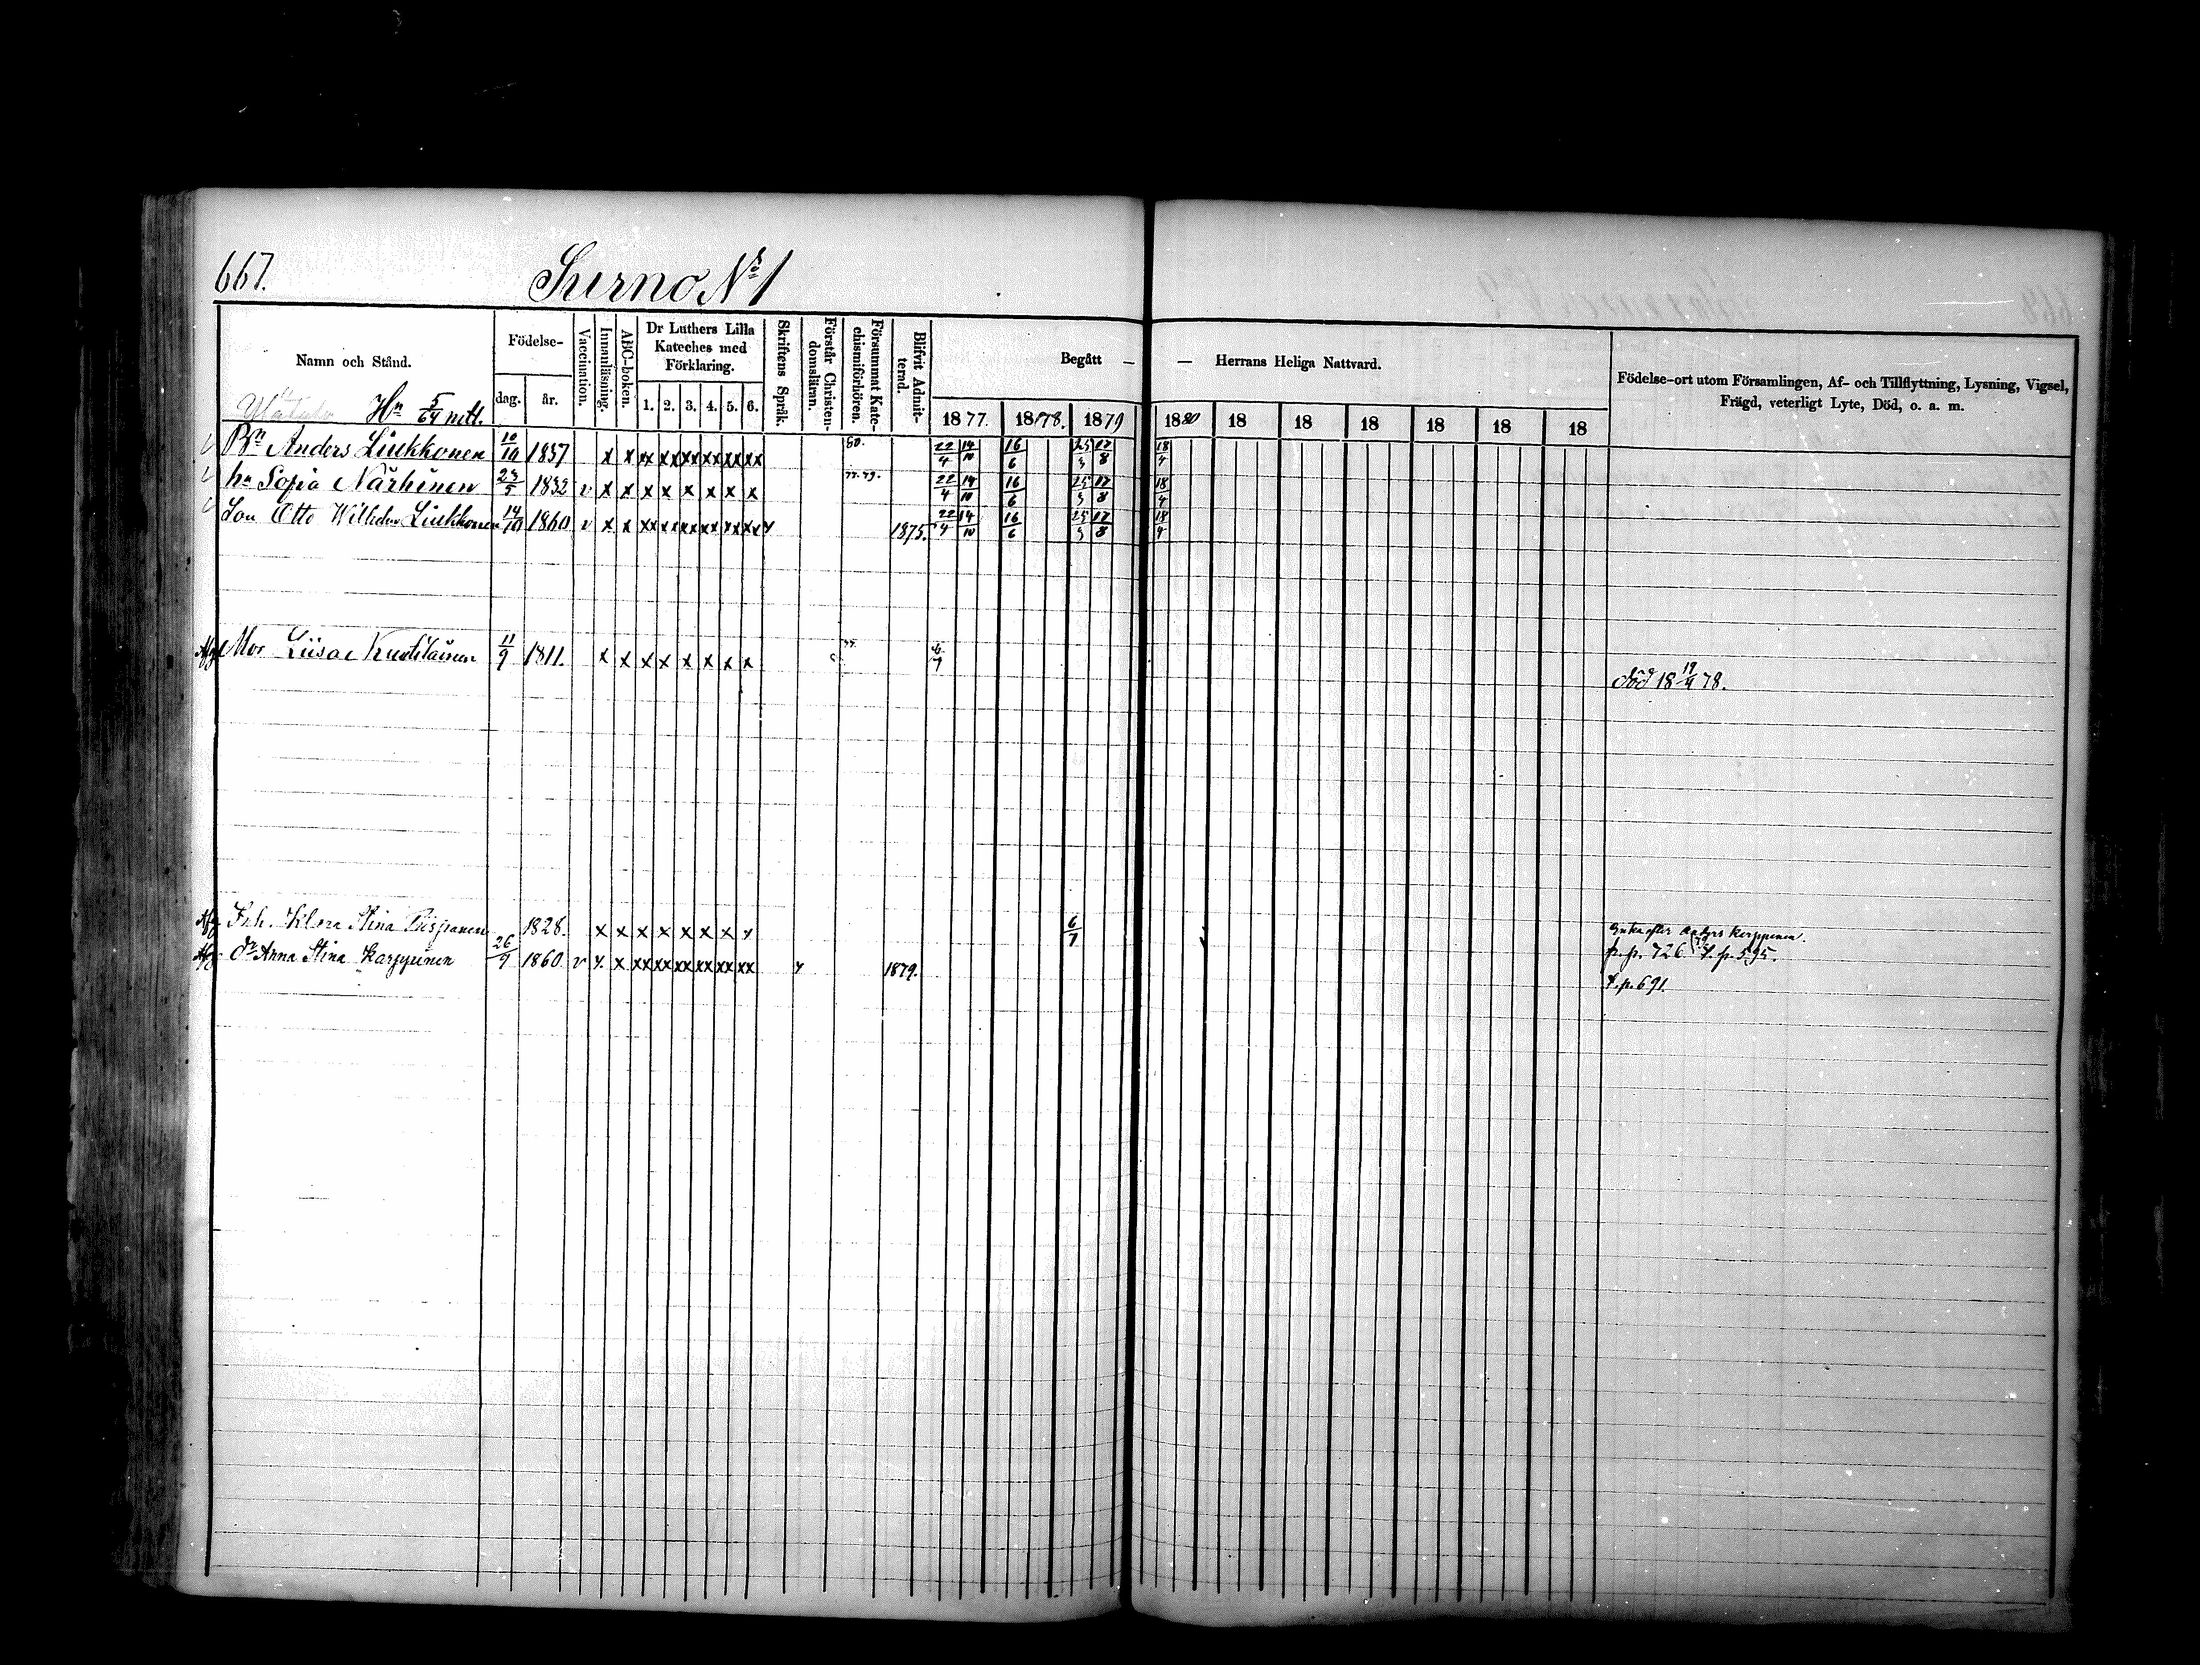 667.
Surno No 1
Namn och Stånd.
Födelse-
dag.
år.
Vaccination.
Innanläsning.
ABC-boken.
Dr Luthers Lilla
Kateches med
Förklaring.
1. 2. 3. 4. 5. 6.
Skriftens Språk.
Förstår Christen-
domsläran.
Försummat Kate-
chismiförhören.
Blifvit Admit-
terad.
Begått — — Herrans Heliga Nattvard.
1877. 1878. 1879 1880 18 18 18 18 18 18
Födelse-ort utom Församlingen, Af- och Tillflyttning, Lysning, Vigsel,
Frägd, veterligt Lyte, Död, o. a. m.
Hn 5/64 mtl.
Bn Anders Liukkonen 10/10 1837 x x xx xx xx xx xx xx 80. 22/4 14/10 16/6 25/3 17/8 18/4
hu Sofia Närhinen 23/5 1832 v x x x x x x x x 77. 79. 22/4 14/10 16/6 25/3 17/8 18/4
Son Otto Wilhelm Liukkonen 14/10 1860 v x x xx xx xx xx xx xx x 1875. 22/4 14/10 16/6 25/3 17/8 18/4
Mor Liisa 11/9 1811. x x x x x x x x 77.
död 18 19/4 78.
Inh. Stina Piispanen 1828. x x x x x x x x 6/7
Enka efter Karppinen.
dr Anna Stina Karppinen 26/9 1860 v x x xx xx xx xx xx xx x 1879.
fr. p. 726. t. p. 595.
t. p. 691.